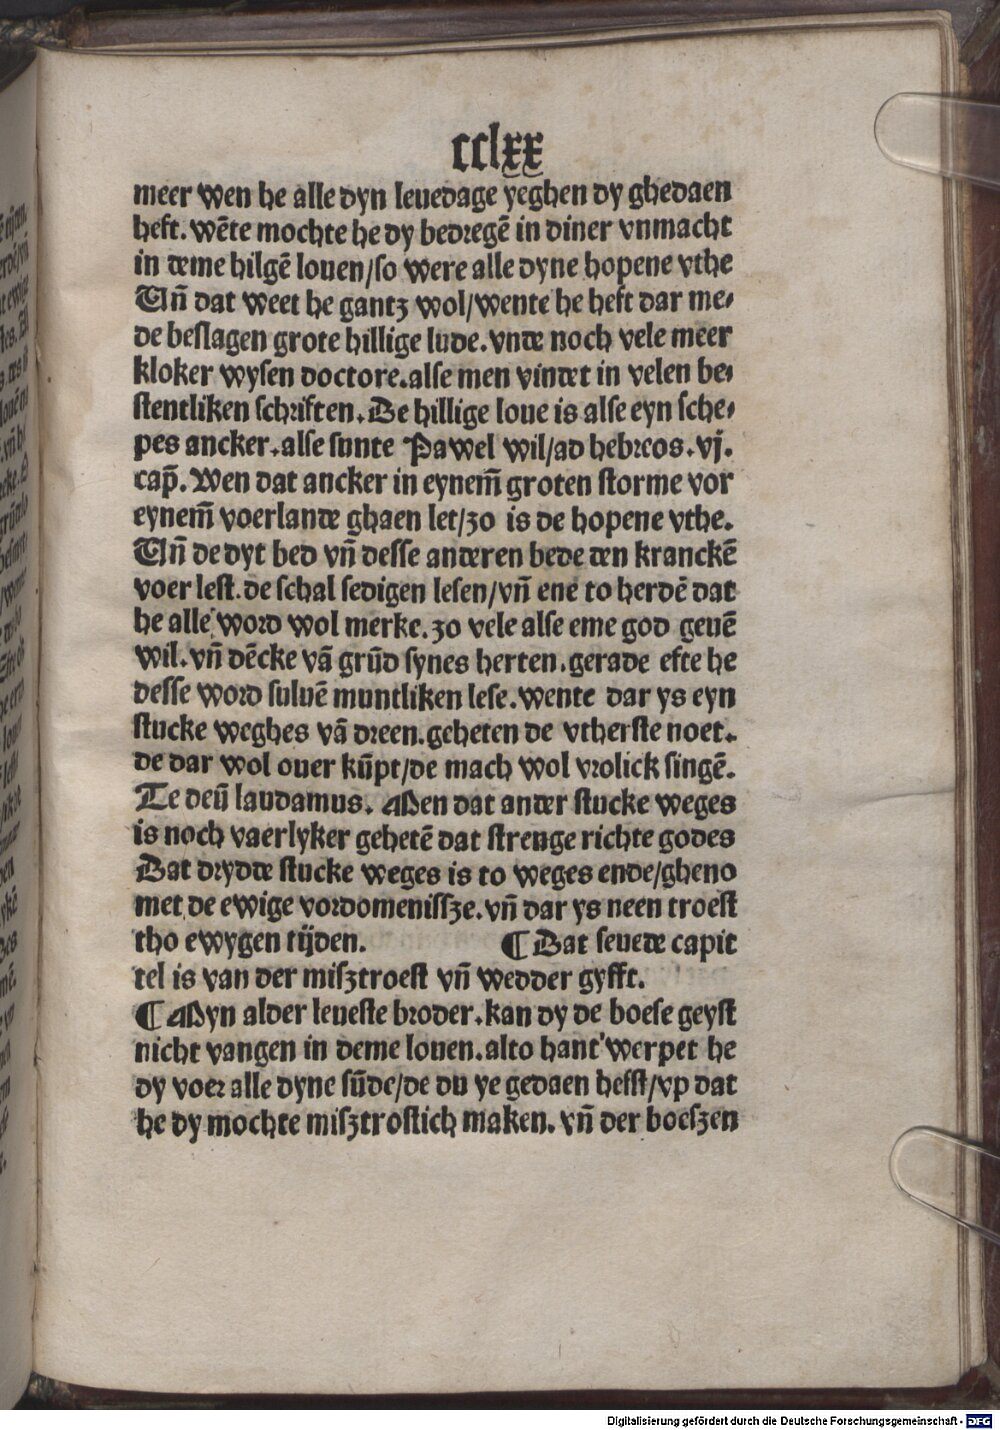 cclxx
meer wen he alle dyn leuedage yeghen dy ghedaen
heft. wēte mochte he dy bedregē in diner vnmacht
in deme hilgē louen/so were alle dyne hopene vthe
Vn̄ dat weet he gantz wol/wente he heft dar me⸗
de beslagen grote hillige lude. vnde noch vele meer
kloker wysen doctore. alse men vindet in velen be⸗
stentliken schriften. De hillige loue is alse eyn sche⸗
pes ancker. alse sunte Pawel wil/ad hebreos. vj.
cap̄. Wen dat ancker in eynem̄ groten storme vor
eynem̄ voerlande ghaen let/zo is de hopene vthe.
Vn̄ de dyt bed vn̄ desse anderen bede den kranckē
voer lest. de schal sedigen lesen/vn̄ ene to herdē dat
he alle word wol merke. zo vele alse eme god geuē
wil. vn̄ dēcke vā grūd synes herten. gerade efte he
desse word suluē muntliken lese. wente dar ys eyn
stucke weghes vā dreen. geheten de vtherste noet.
de dar wol ouer kūpt/de mach wol vrolick singē.
Te deū laudamus. Men dat ander stucke weges
is noch vaerlyker gehetē dat strenge richte godes
Dat drydde stucke weges is to weges ende/gheno
met de ewige vordomenissze. vn̄ dar ys neen troest
tho ewygen tijden. ¶ Dat seuede capit
tel is van der misztroest vn̄ wedder gyfft.
¶ Myn alder leueste broder. kan dy de boese geyst
nicht vangen in deme louen. alto hant werpet he
dy voer alle dyne sūde/de du ye gedaen hefst/vp dat
he dy mochte misztrostich maken. vn̄ der boeszen
Digitalisierung gefördert durch die Deutsche Forschungsgemeinschaft - DFG